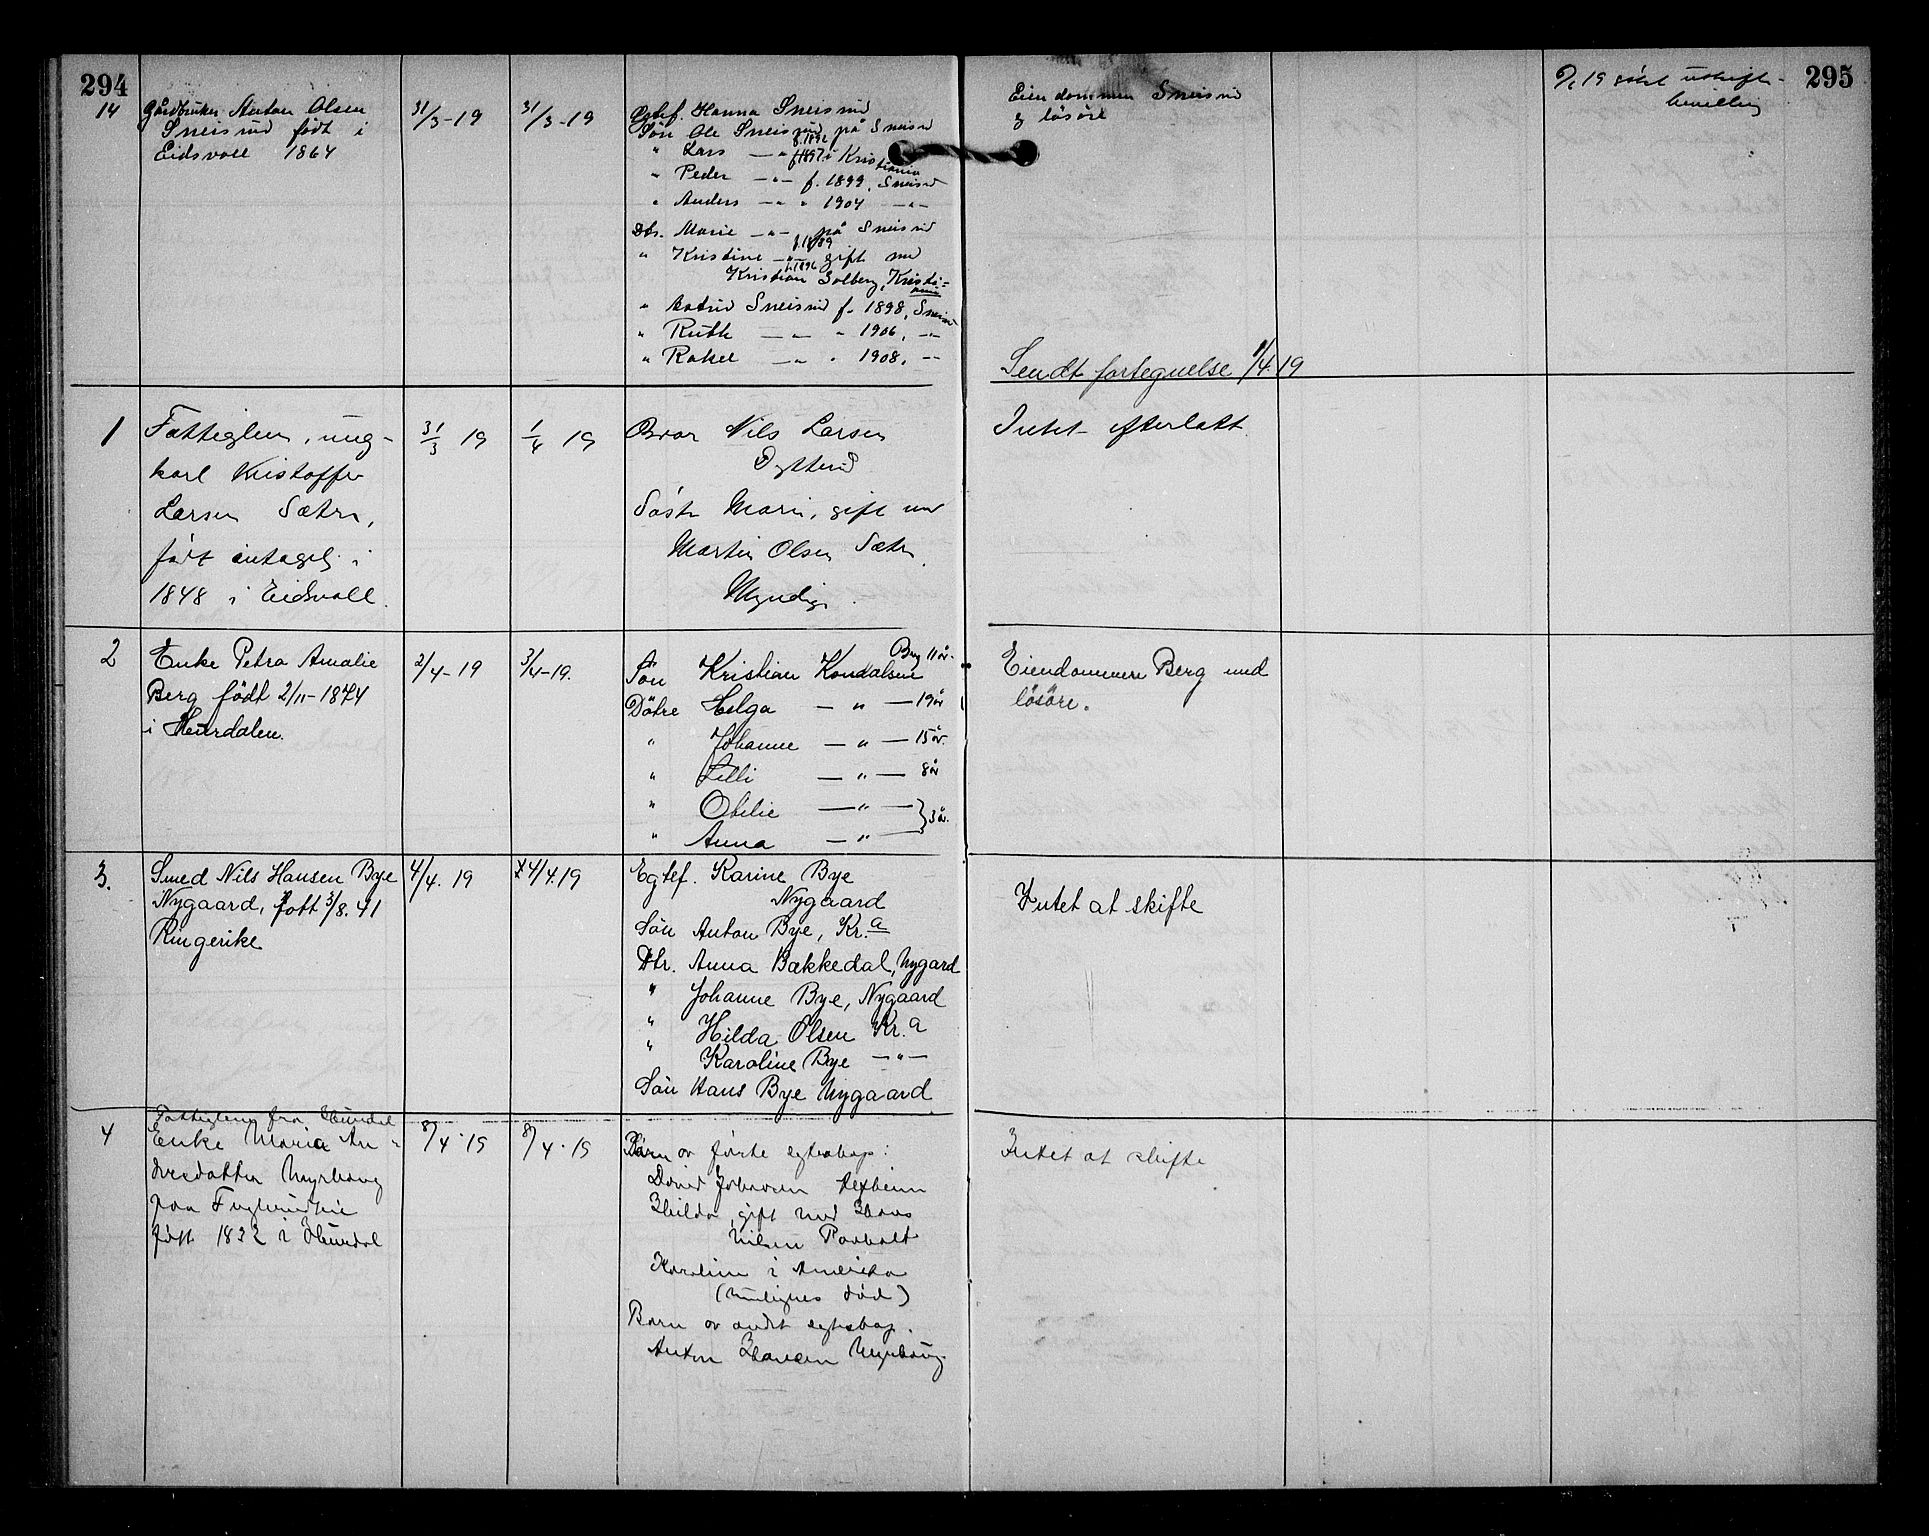 294
14
Gårdbruker Anton Olsen
Sneisrud født i
Eidsvoll 1864
31/3-19
31/3-19
Egtef. Hanna Sneisrud
Søn Ole Sneisrud på Sneisrud
f. 1892
" Lars — " — f 1897 i Kristiania
" Peder — " — f. 1899, Sneisrud
" Anders — " " 1904 — " —
Dtr. Marie — " — på Sneisrud
f. 1889
" Kristine — " — gift med
f. 1896
Kristian Solberg, Kristiania
" Astrid Sneisrud f. 1898, Sneisrud
" Ruth — " — " 1906, — " —
" Rakel — " — " 1908. — " —
Eiendommen Sneisrud
og løsöre
Sendt fortegnelse 1/4 19
19 søkt uskifte-
bevilling
295
1
Fattiglem, ung-
karl Kristoffer
Larsen Sætre,
født antagelig i
1848 i Eidsvoll.
31/3 19
1/4 19
Bror Nils Larsen
Søster Marie, gift med
Martin Olsen Sætre
Myndige.
Intet efterlatt.
2
Enke Petra Amalie
Berg född 2/11-1874
i Hurdalen.
2/4-19
3/4-19.
Søn Kristian Kondalsene Berg 11 år.
Döttre Helga — " — 19 år
" Johanne — " — 15 år.
" Lilli — " — 8 år
" Otilie — " —
" Anna — " — } 3 år.
Eiendommen Berg med
lösöre.
3.
Smed Nils Hansen Bye
Nygaard, født 3/8. 41
Ringerike
4/4. 19
4/4.19
Egtef. Karine Bye
Nygaard
Søn Anton Bye, Kr.a
Dtr. Anna Bakkedal, Nygard
" Johanne Bye, Nygaard
" Hilda Olsen Kr.a
" Karoline Bye — " —
Søn Hans Bye Nygaard
Intet at skifte
4
Fattiglem fra Hurdal
Enke Maria An-
dersdatter Myrhaug
paa
født 1832 i Hurdal
8/4.19
8/4.19
Barn av første egteskap:
Hilda, gift med Hans
Nilsen
Karoline i Amerika
(muligens død)
Barn av andet egteskap.
Anton Hansen Myrhaug
Intet at skifte